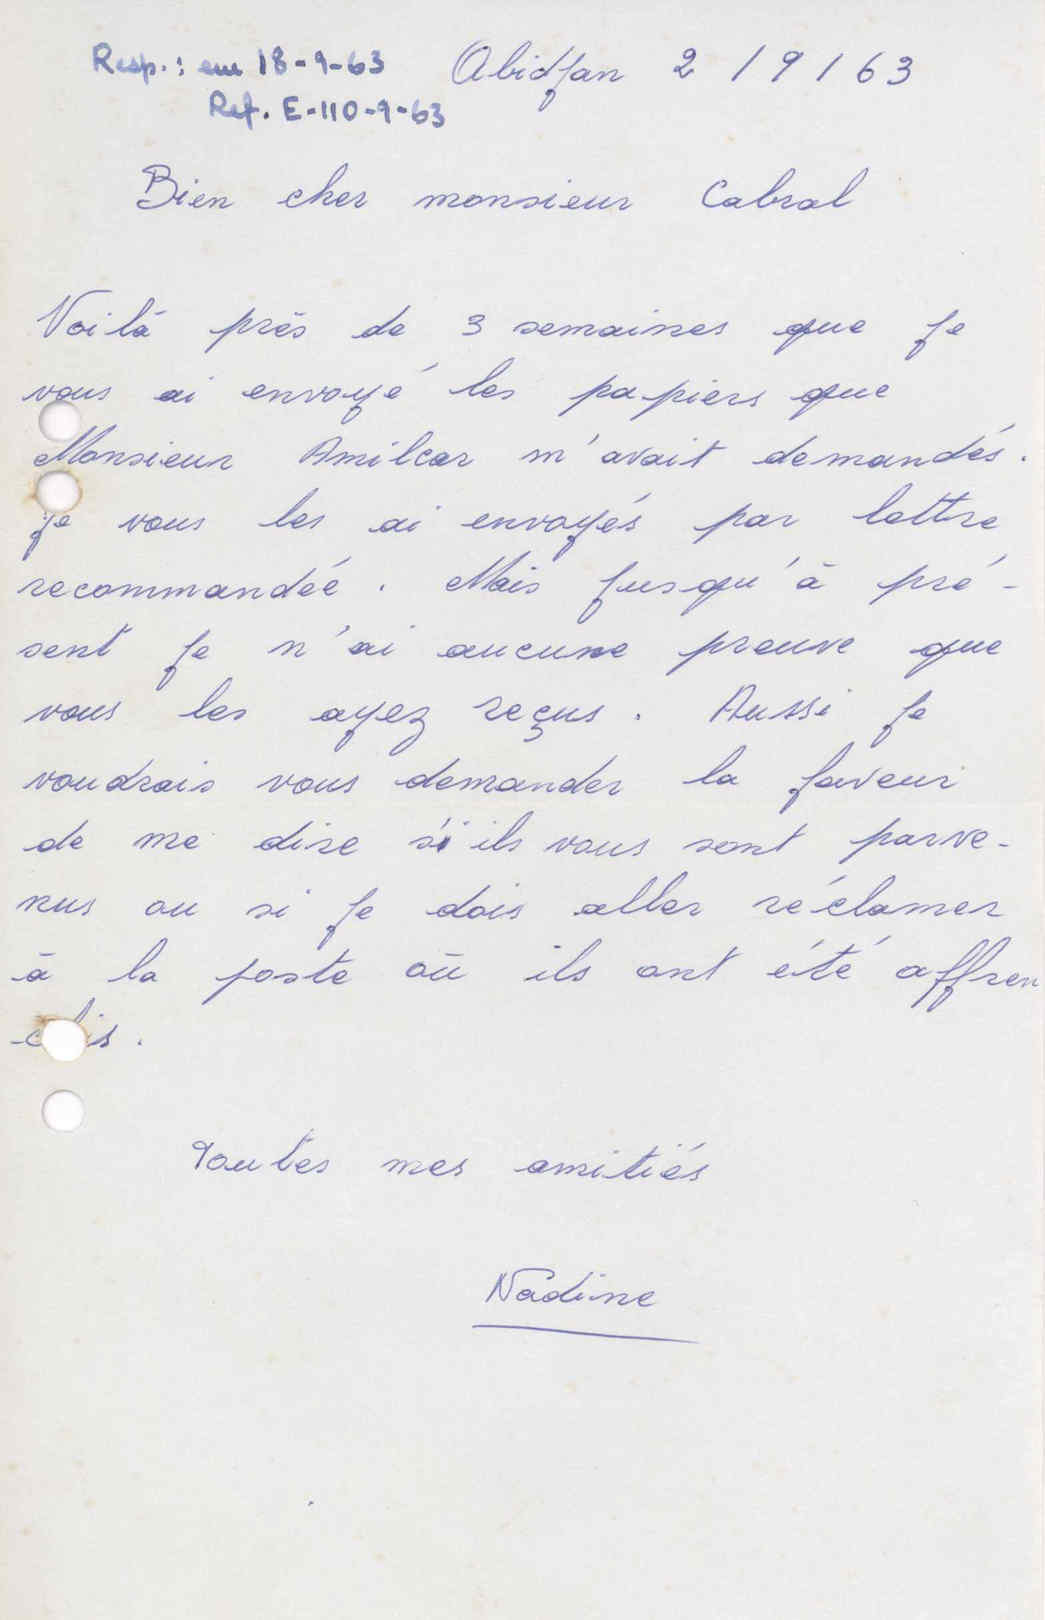 Resp.: em 18-9-63 Abidjan 2/9/63
Ref. E-110-9-63
Bien cher monsieur Cabral
Voilà près de 3 semaines que je
vous ai envoyé les papiers que
Monsieur Amilcar m'avait demandés.
je vous les ai envoyés par lettre
recommandée. Mais jusqu'à pré-
sent je n'ai aucune preuve que
vous les ayez reçus. Aussi je
voudrais vous demander la faveur
de me dire s'ils vous sont parve-
nus ou si je dois aller réclamer
à la poste où ils ont été affran
-chis.
Toutes mes amitiés
Nadine